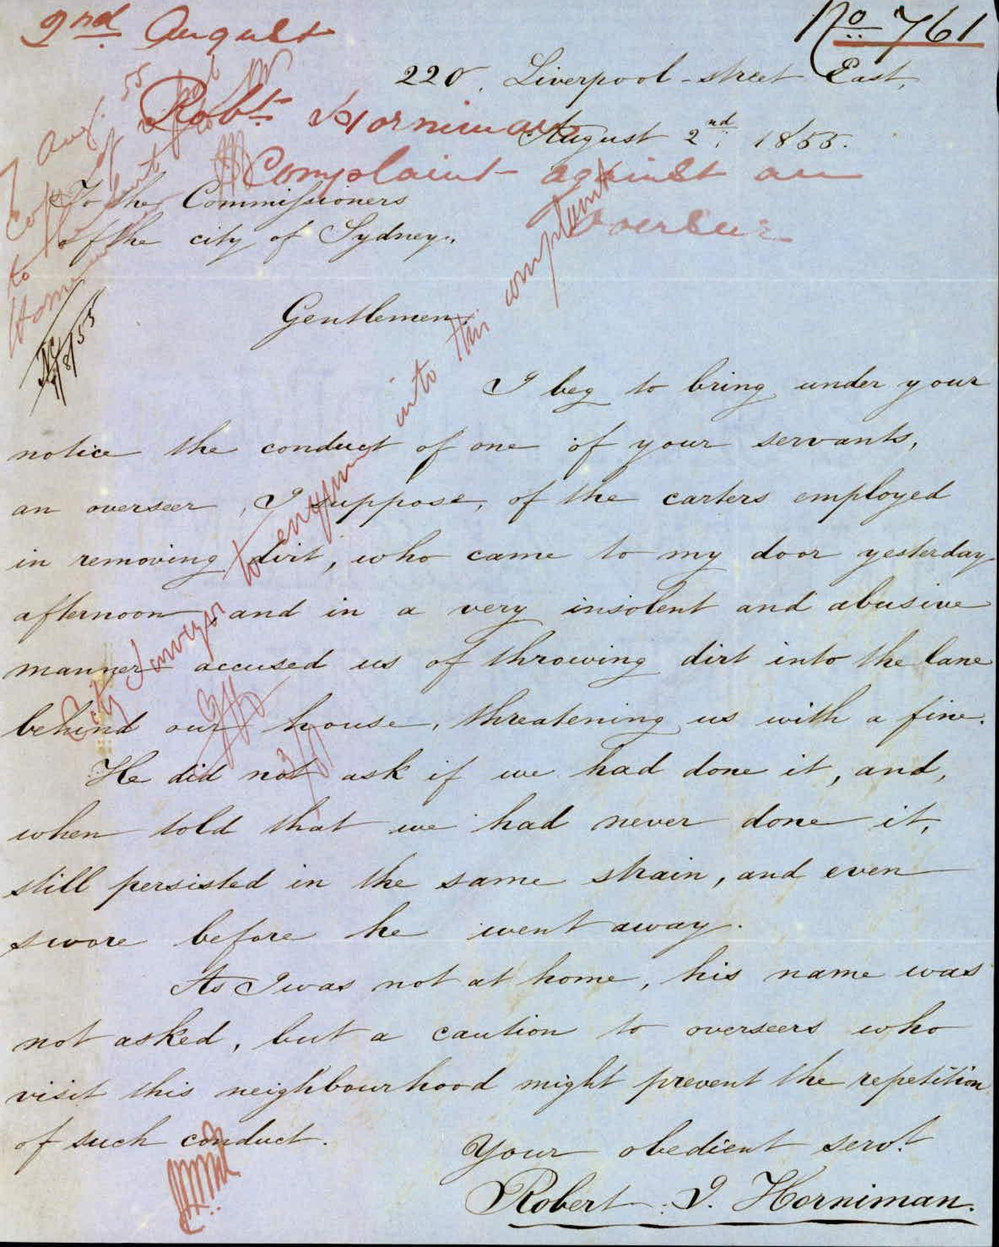 No 761
2nd August
220, Liverpool-street East,
August 2nd, 1855.
Robt Horniman
Complaint against an
Overseer
7 Aug. 55
Copy of
to
To the Commissioners
of the city of Sydney,
Gentlemen,
7/8/55
I beg to bring under your
notice the conduct of one of your servants,
an overseer, I suppose, of the carters employed
in removing dirt, who came to my door yesterday
afternoon and in a very insolent and abusive
manner accused us of throwing dirt into the lane
behind our house, threatening us with a fine.
He did not ask if we had done it, and,
when told that we had never done it,
still persisted in the same strain, and even
swore before he went away.
As I was not at home, his name was
not asked, but a caution to overseers who
visit this neighbourhood might prevent the repetition
of such conduct.
Your obedient servt
Robert I. Horniman.
City Surveyor to enquire into this complaint